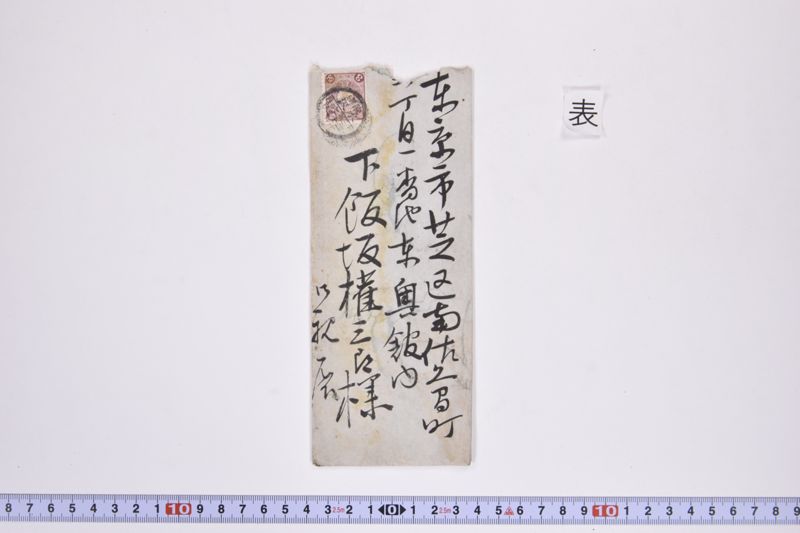 東京市芝区南佐久間町
二丁目一番地東奥舘内
下飯坂權三郎様
御親展
表
8 7 6 5 4 3 2 1 10 9 8 7 6 5 4 3 2.5m 2 1 0 1 2 2.5m 3 4 5 6 7 8 9 10 1 2 3 4 5 6 7 8 9